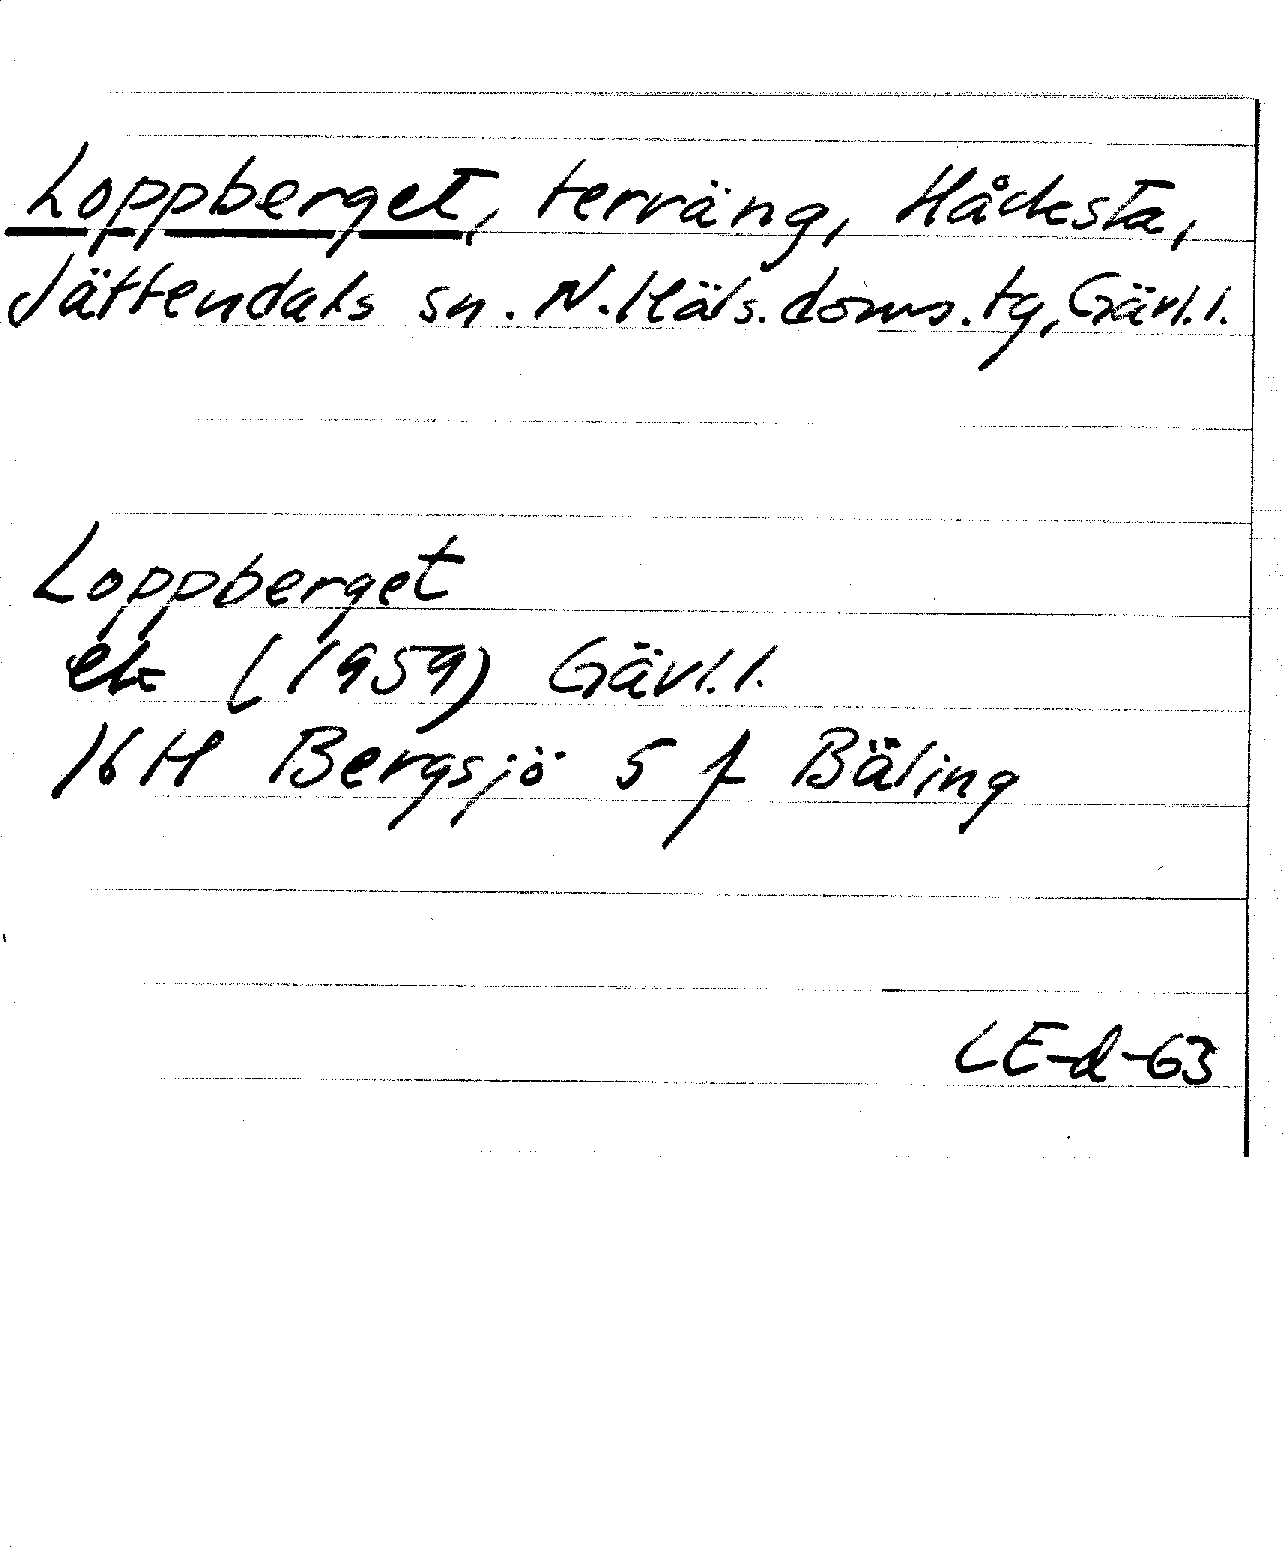 Loppberget, terräng, Hådesta,
Jättendals sn. N. Häls. doms. tg, Gävl. l.
Loppberget
ek (1959) Gävl. l.
16 H Bergsjö 5 f Bäling
LE-d-63